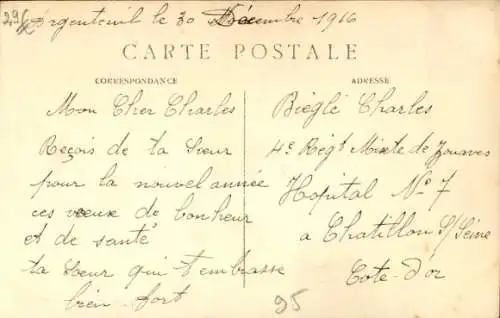 296
Argenteuil le 30 Décembre 1916
CARTE POSTALE
CORRESPONDANCE
ADRESSE
Mon Cher Charles
Reçois de ta Sœur
pour la nouvel année
ces vœux de bonheur
et de santé
ta Soeur qui t'embrasse
bien fort
Bièglé Charles
4e Régt Mixte de Zouaves
Hopital No 7
a Chatillon S/Seine
Cote-d'or
95